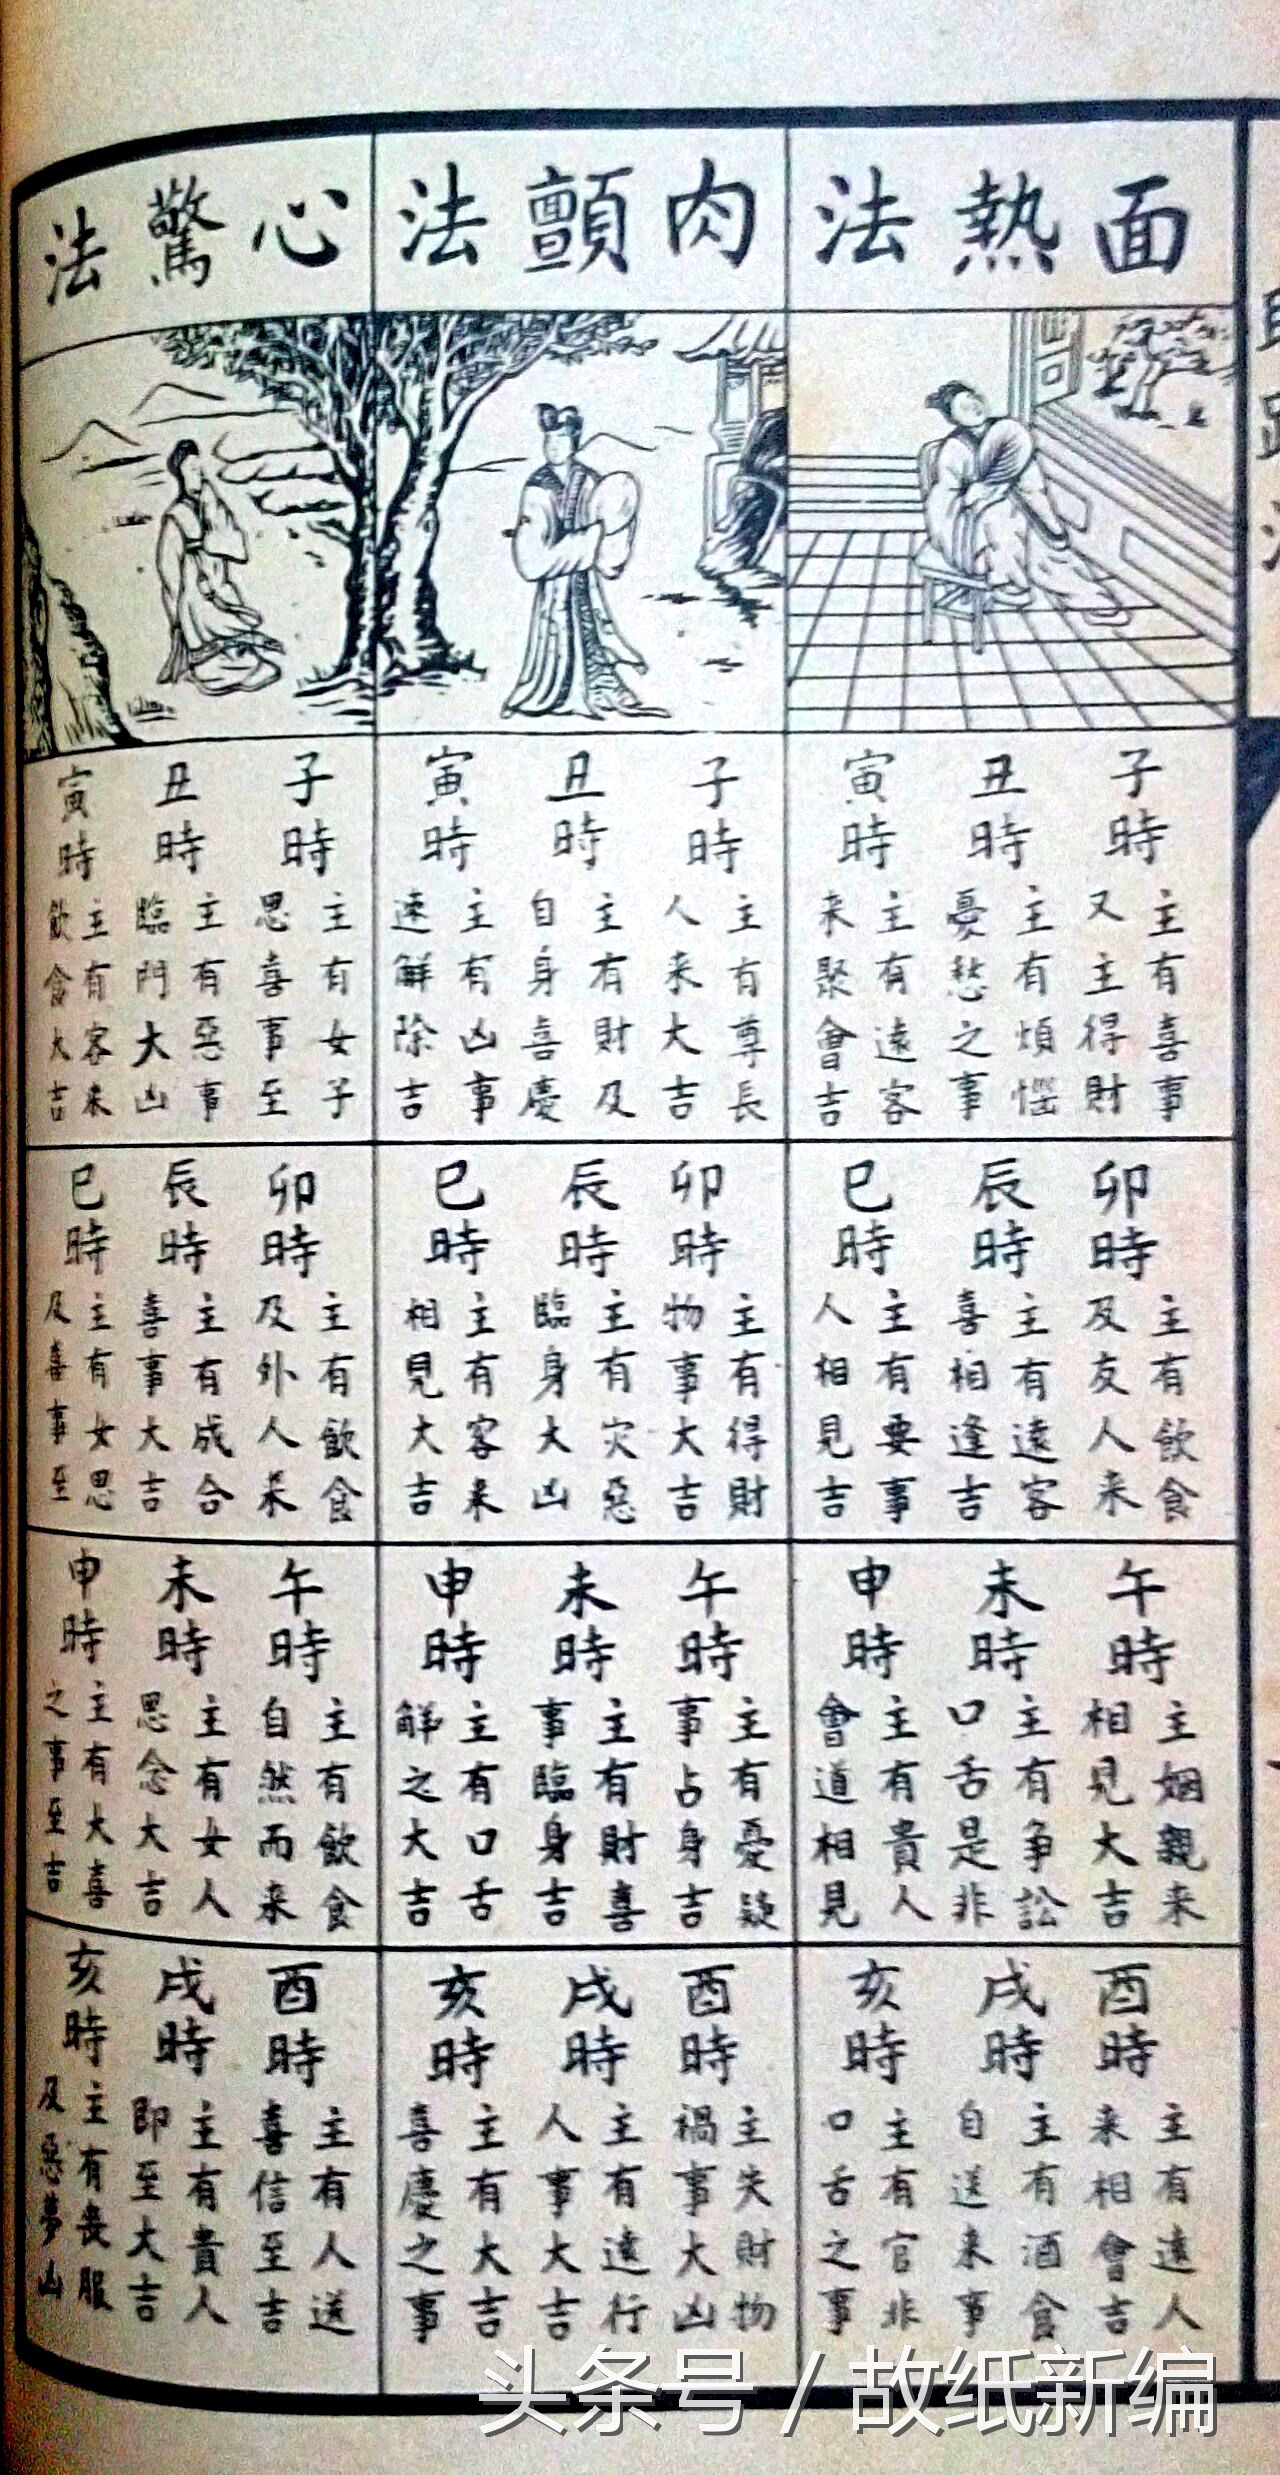 面熱法
子時
主有喜事
又主得財
丑時
主有煩惱
憂愁之事
寅時
主有遠客
来聚會吉
卯時
主有飲食
及友人来
辰時
主有遠客
喜相逢吉
巳時
主有要事
人相見吉
午時
主姻親来
相見大吉
未時
主有爭訟
口舌是非
申時
主有貴人
會道相見
酉時
主有遠人
来相會吉
戌時
主有酒食
自送来事
亥時
主有官非
口舌之事
肉顫法
子時
主有尊長
人来大吉
丑時
主有財及
自身喜慶
寅時
主有凶事
速解除吉
卯時
主有得財
物事大吉
辰時
主有灾惡
臨身大凶
巳時
主有客来
相見大吉
午時
主有憂疑
事占身吉
未時
主有財喜
事臨身吉
申時
主有口舌
解之大吉
酉時
主失財物
禍事大凶
戌時
主有遠行
人事大吉
亥時
主有大吉
喜慶之事
心驚法
子時
主有女子
思喜事至
丑時
主有惡事
臨門大凶
寅時
主有客来
飲會大吉
卯時
主有飲食
及外人来
辰時
主有成合
喜事大吉
巳時
主有女思
及喜事至
午時
主有飲食
自然而来
未時
主有女人
思念大吉
申時
主有大喜
之事至吉
酉時
主有人送
喜信至吉
戌時
主有貴人
即至大吉
亥時
主有喪服
及惡夢凶
头条号 / 故纸新编